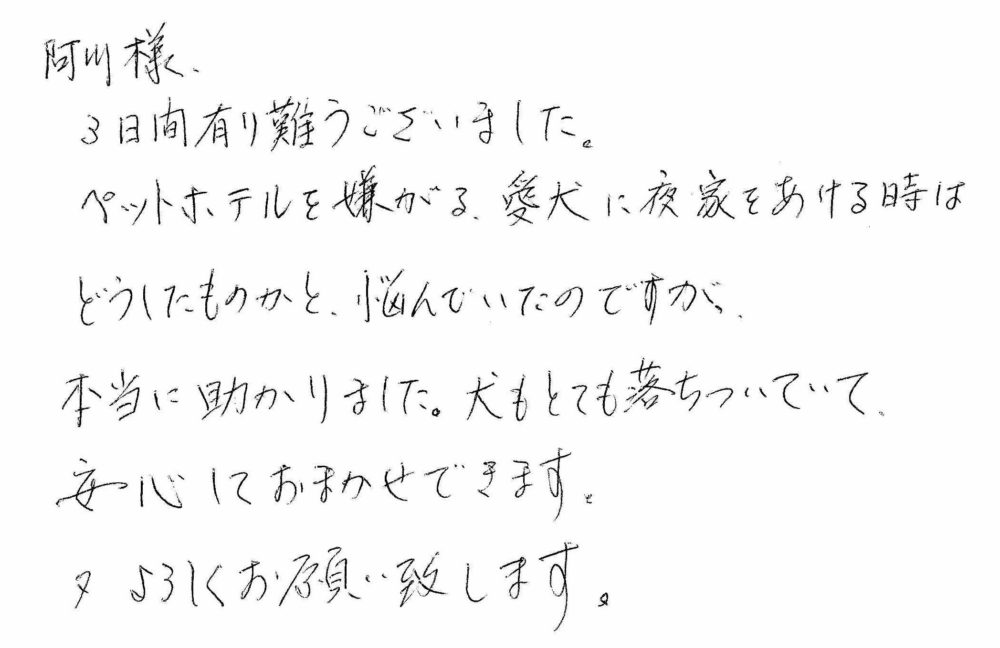 阿川様、
3日間有り難うございました。
ペットホテルを嫌がる、愛犬に夜家をあける時は
どうしたものかと、悩んでいたのですが、
本当に助かりました。犬もとても落ちついていて、
安心しておまかせできます。
又よろしくお願い致します。